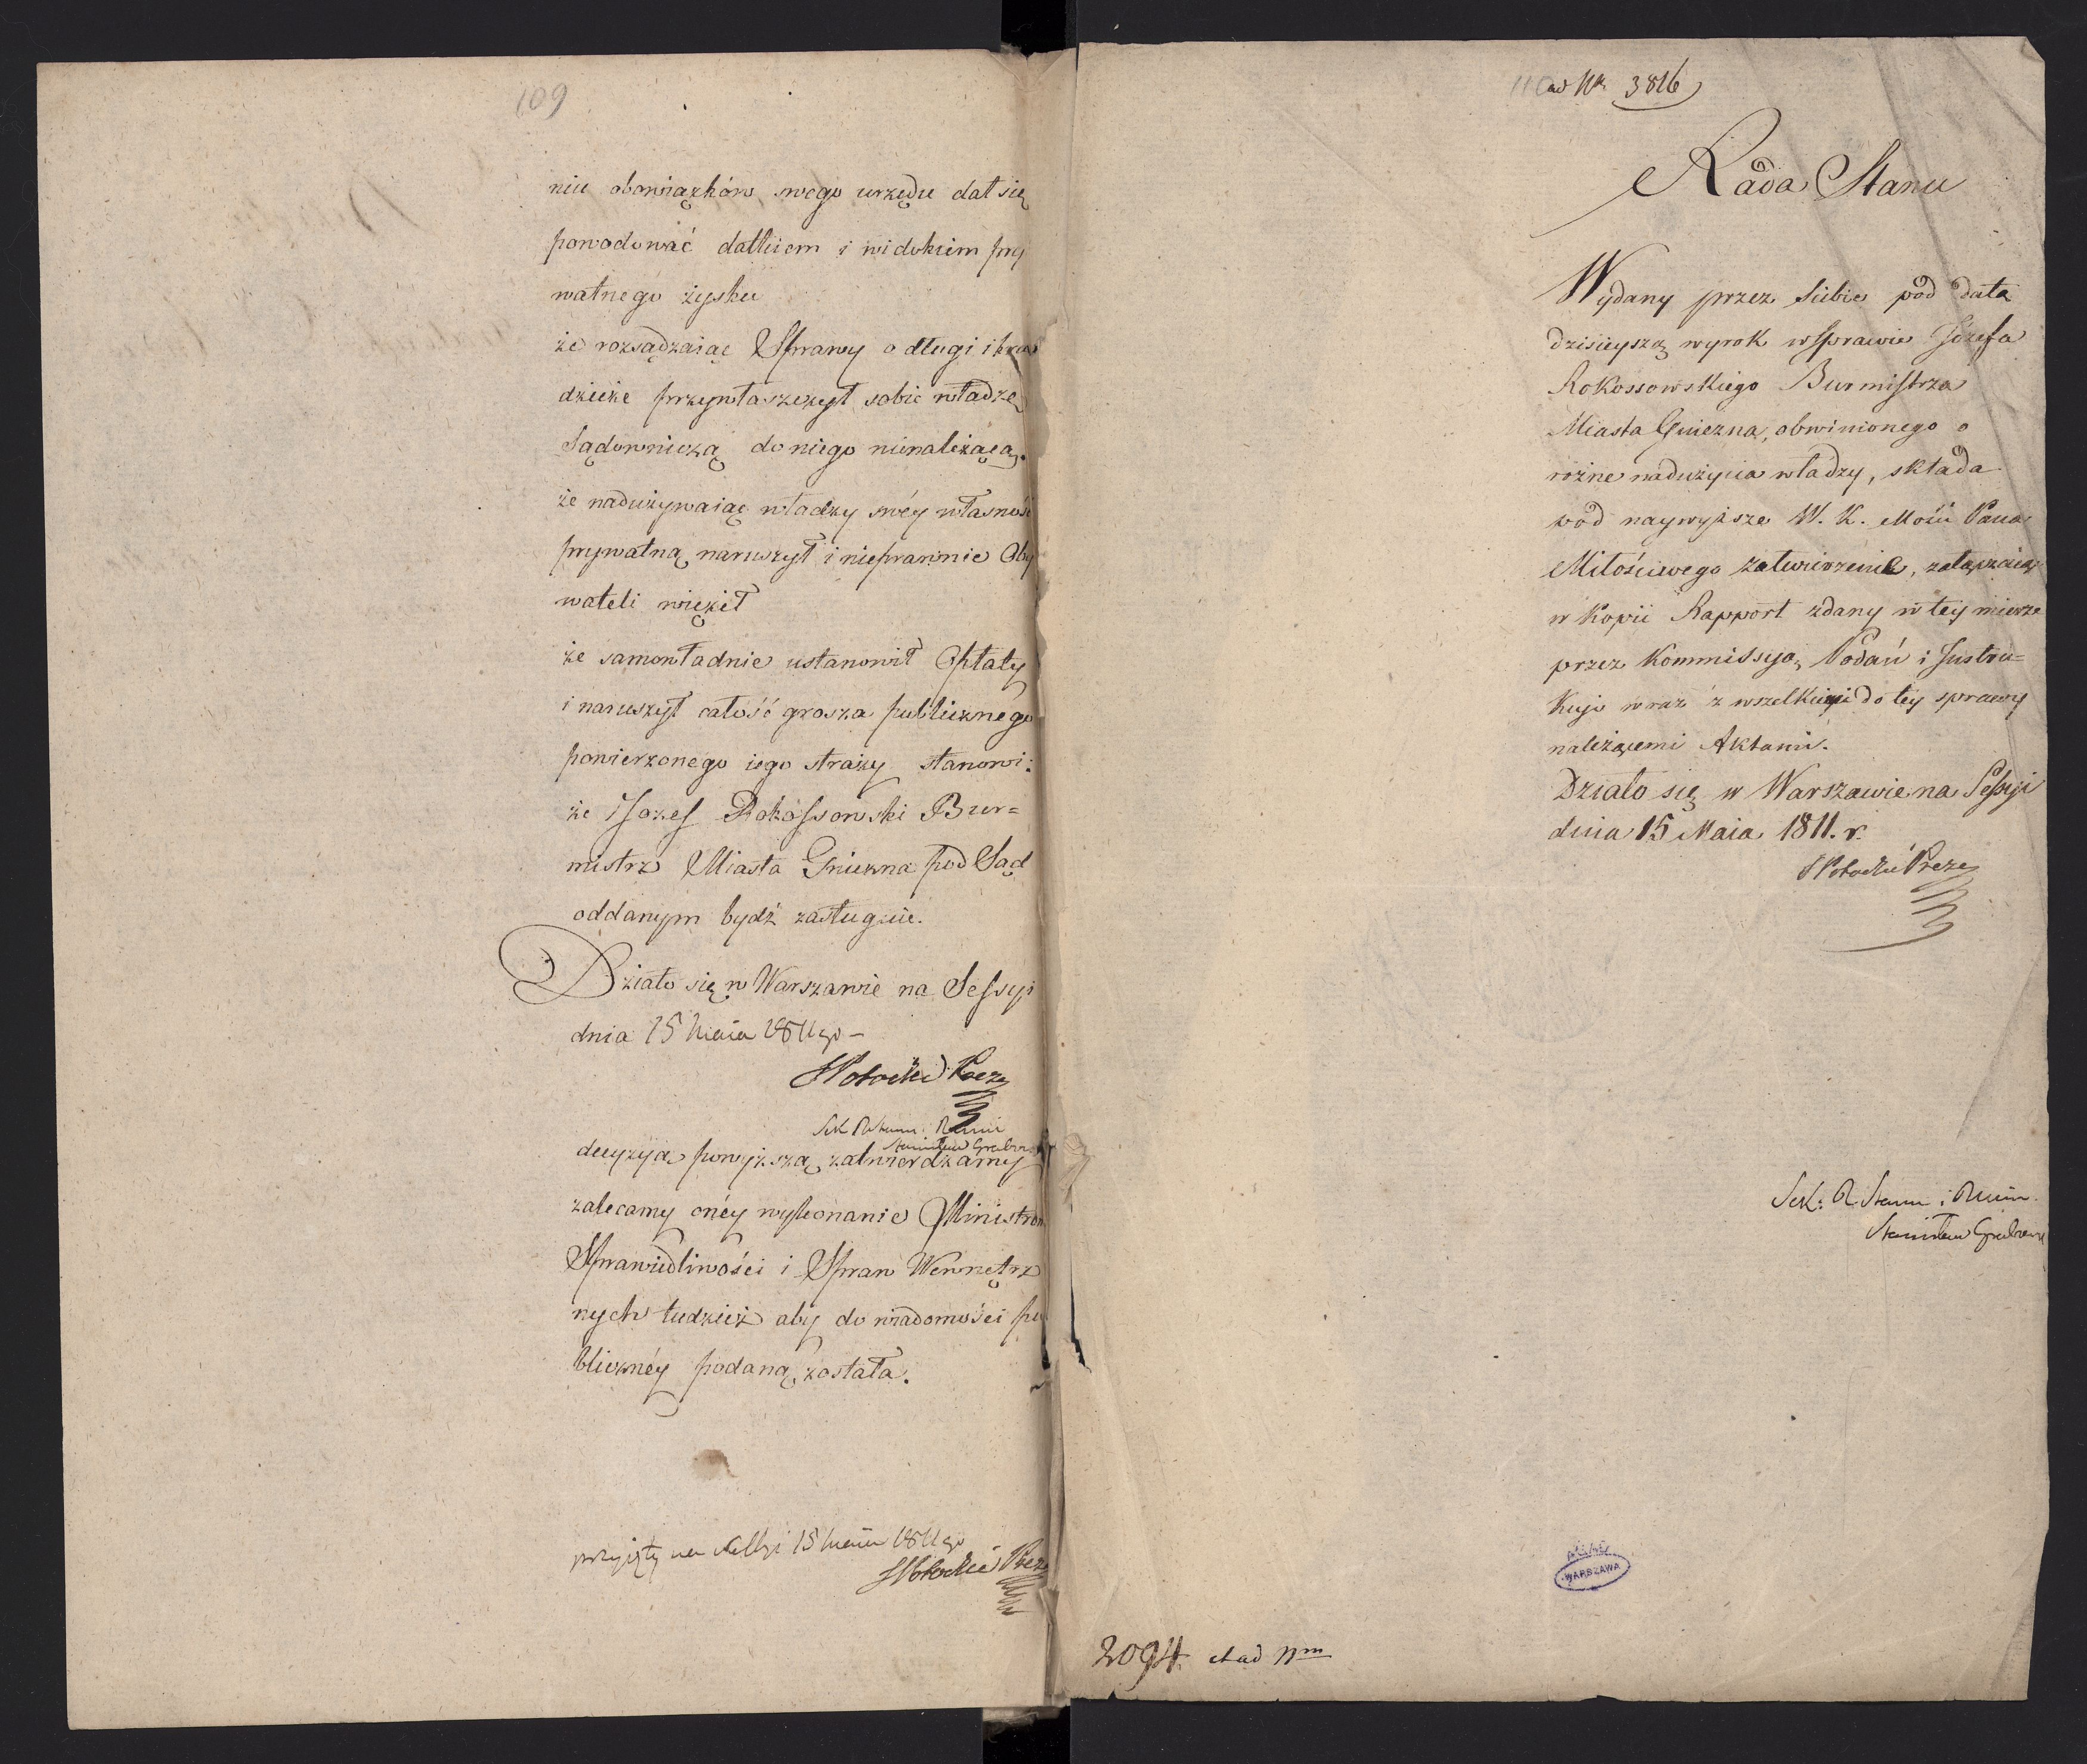 109
niu obowiązków swego urzędu dał się
powodować datkiem i widokiem pry
watnego zysku
że rozsądzaiąc Sprawy o długi i kra
dzieże przywłaszczył sobie władzę
Sądowniczą do niego nienależącą.
że nadużywaiąc władzy swéy własność
prywatną naruszył i nieprawnie Oby
wateli więził
że samowładnie ustanowił Opłaty
i naruszył całość grosza publicznego
powierzonego iego straży stanowi:
że Jozef Rokossowski Bur=
mistrz Miasta Gniezna pod Sąd
oddanym bydź zasługuie.
Działo się w Warszawie na Sessyi
dnia 15 Maia 1811go –
SPotocki Prezes
Sek R Stanu i R Min
Stanisław Grabowski
decyzyą powyższą zatwierdzamy
zalecamy onéy wykonanie Ministrom
Sprawiedliwości i Spraw Wewnętrz
nych tudzież aby do wiadomości pu
bliczney podaną została.
przyięty na Sessyi 15 Maia 1811go
SPotocki Prezes
110
ad Nr 3816
Rada Stanu
Wydany przez Siebie pod datą
dzisieyszą wyrok w Sprawie Józefa
Rokossowskiego Burmistrza
Miasta Gniezna, obwinionego o
rożne nadużycia władzy, składa
pod naywyższe W. K. Mości Pana
Miłościwego zatwierdzenie, załączaiąc
w Kopii Rapport zdany w tey mierze
przez Kommissyą Podań i Instru=
kcyi wraz z wszelkiemi do tey sprawy
należącemi Aktami.
Działo się w Warszawie na Sessyi
dnia 15 Maia 1811. r.
SPotocki Prezes
Sek: R. Stanu i R Min.
Stanisław Grabowski
AGAD
WARSZAWA
2094. ad Nm